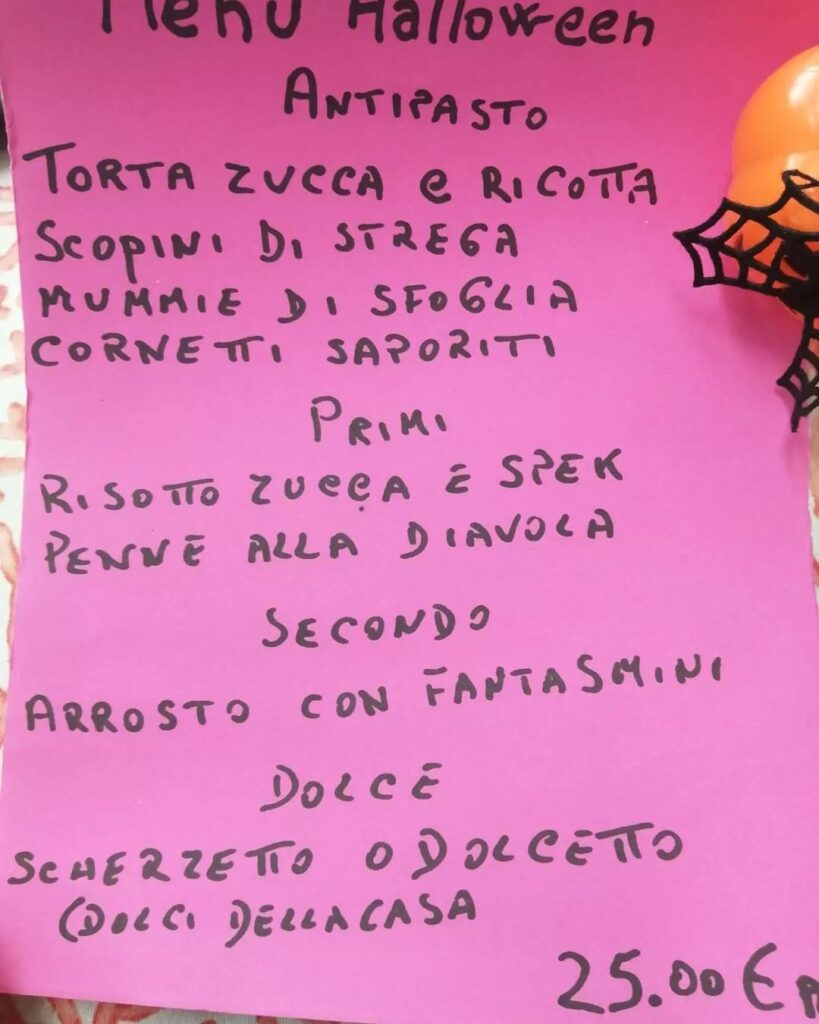 Menu Halloween
ANTIPASTO
TORTA ZUCCA e RICOTTA
SCOPINI DI STREGA
MUMMIE DI SFOGLIA
CORNETTI SAPORITI
PRIMI
RISOTTO ZUCCA E SPEK
PENNE ALLA DIAVOLA
SECONDO
ARROSTO CON FANTASMINI
DOLCE
SCHERZETTO O DOLCETTO
(DOLCI DELLA CASA
25.00 €